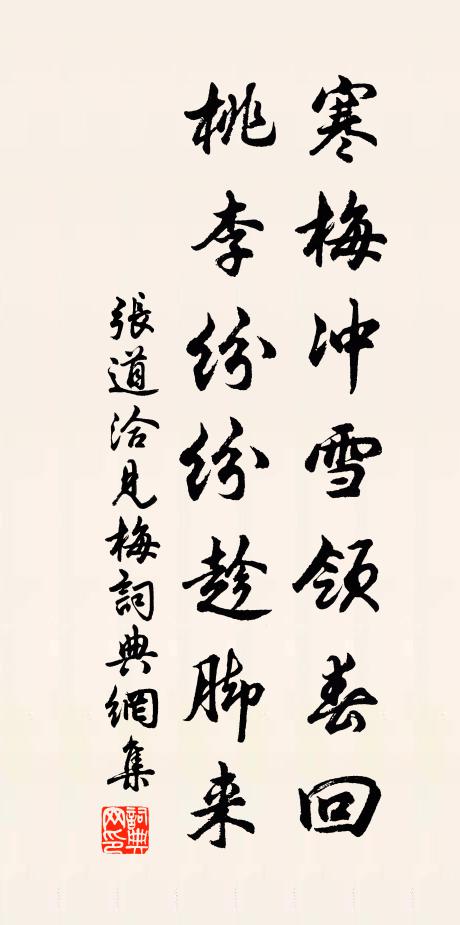 寒梅冲雪領春回
桃李紛紛趁脚来
張道洽見梅詞典網集
詞典網印